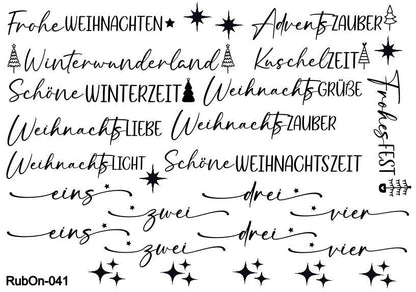 Frohe WEIHNACHTEN
AdventsZAUBER
Winterwunderland
KuschelZEIT
Schöne WINTERZEIT
WeihnachtsGRÜßE
FrohesFEST
WeihnachtsLIEBE
WeihnachtsZAUBER
WeihnachtsLICHT
Schöne WEIHNACHTSZEIT
eins
zwei
drei
vier
eins
zwei
drei
vier
RubOn-041